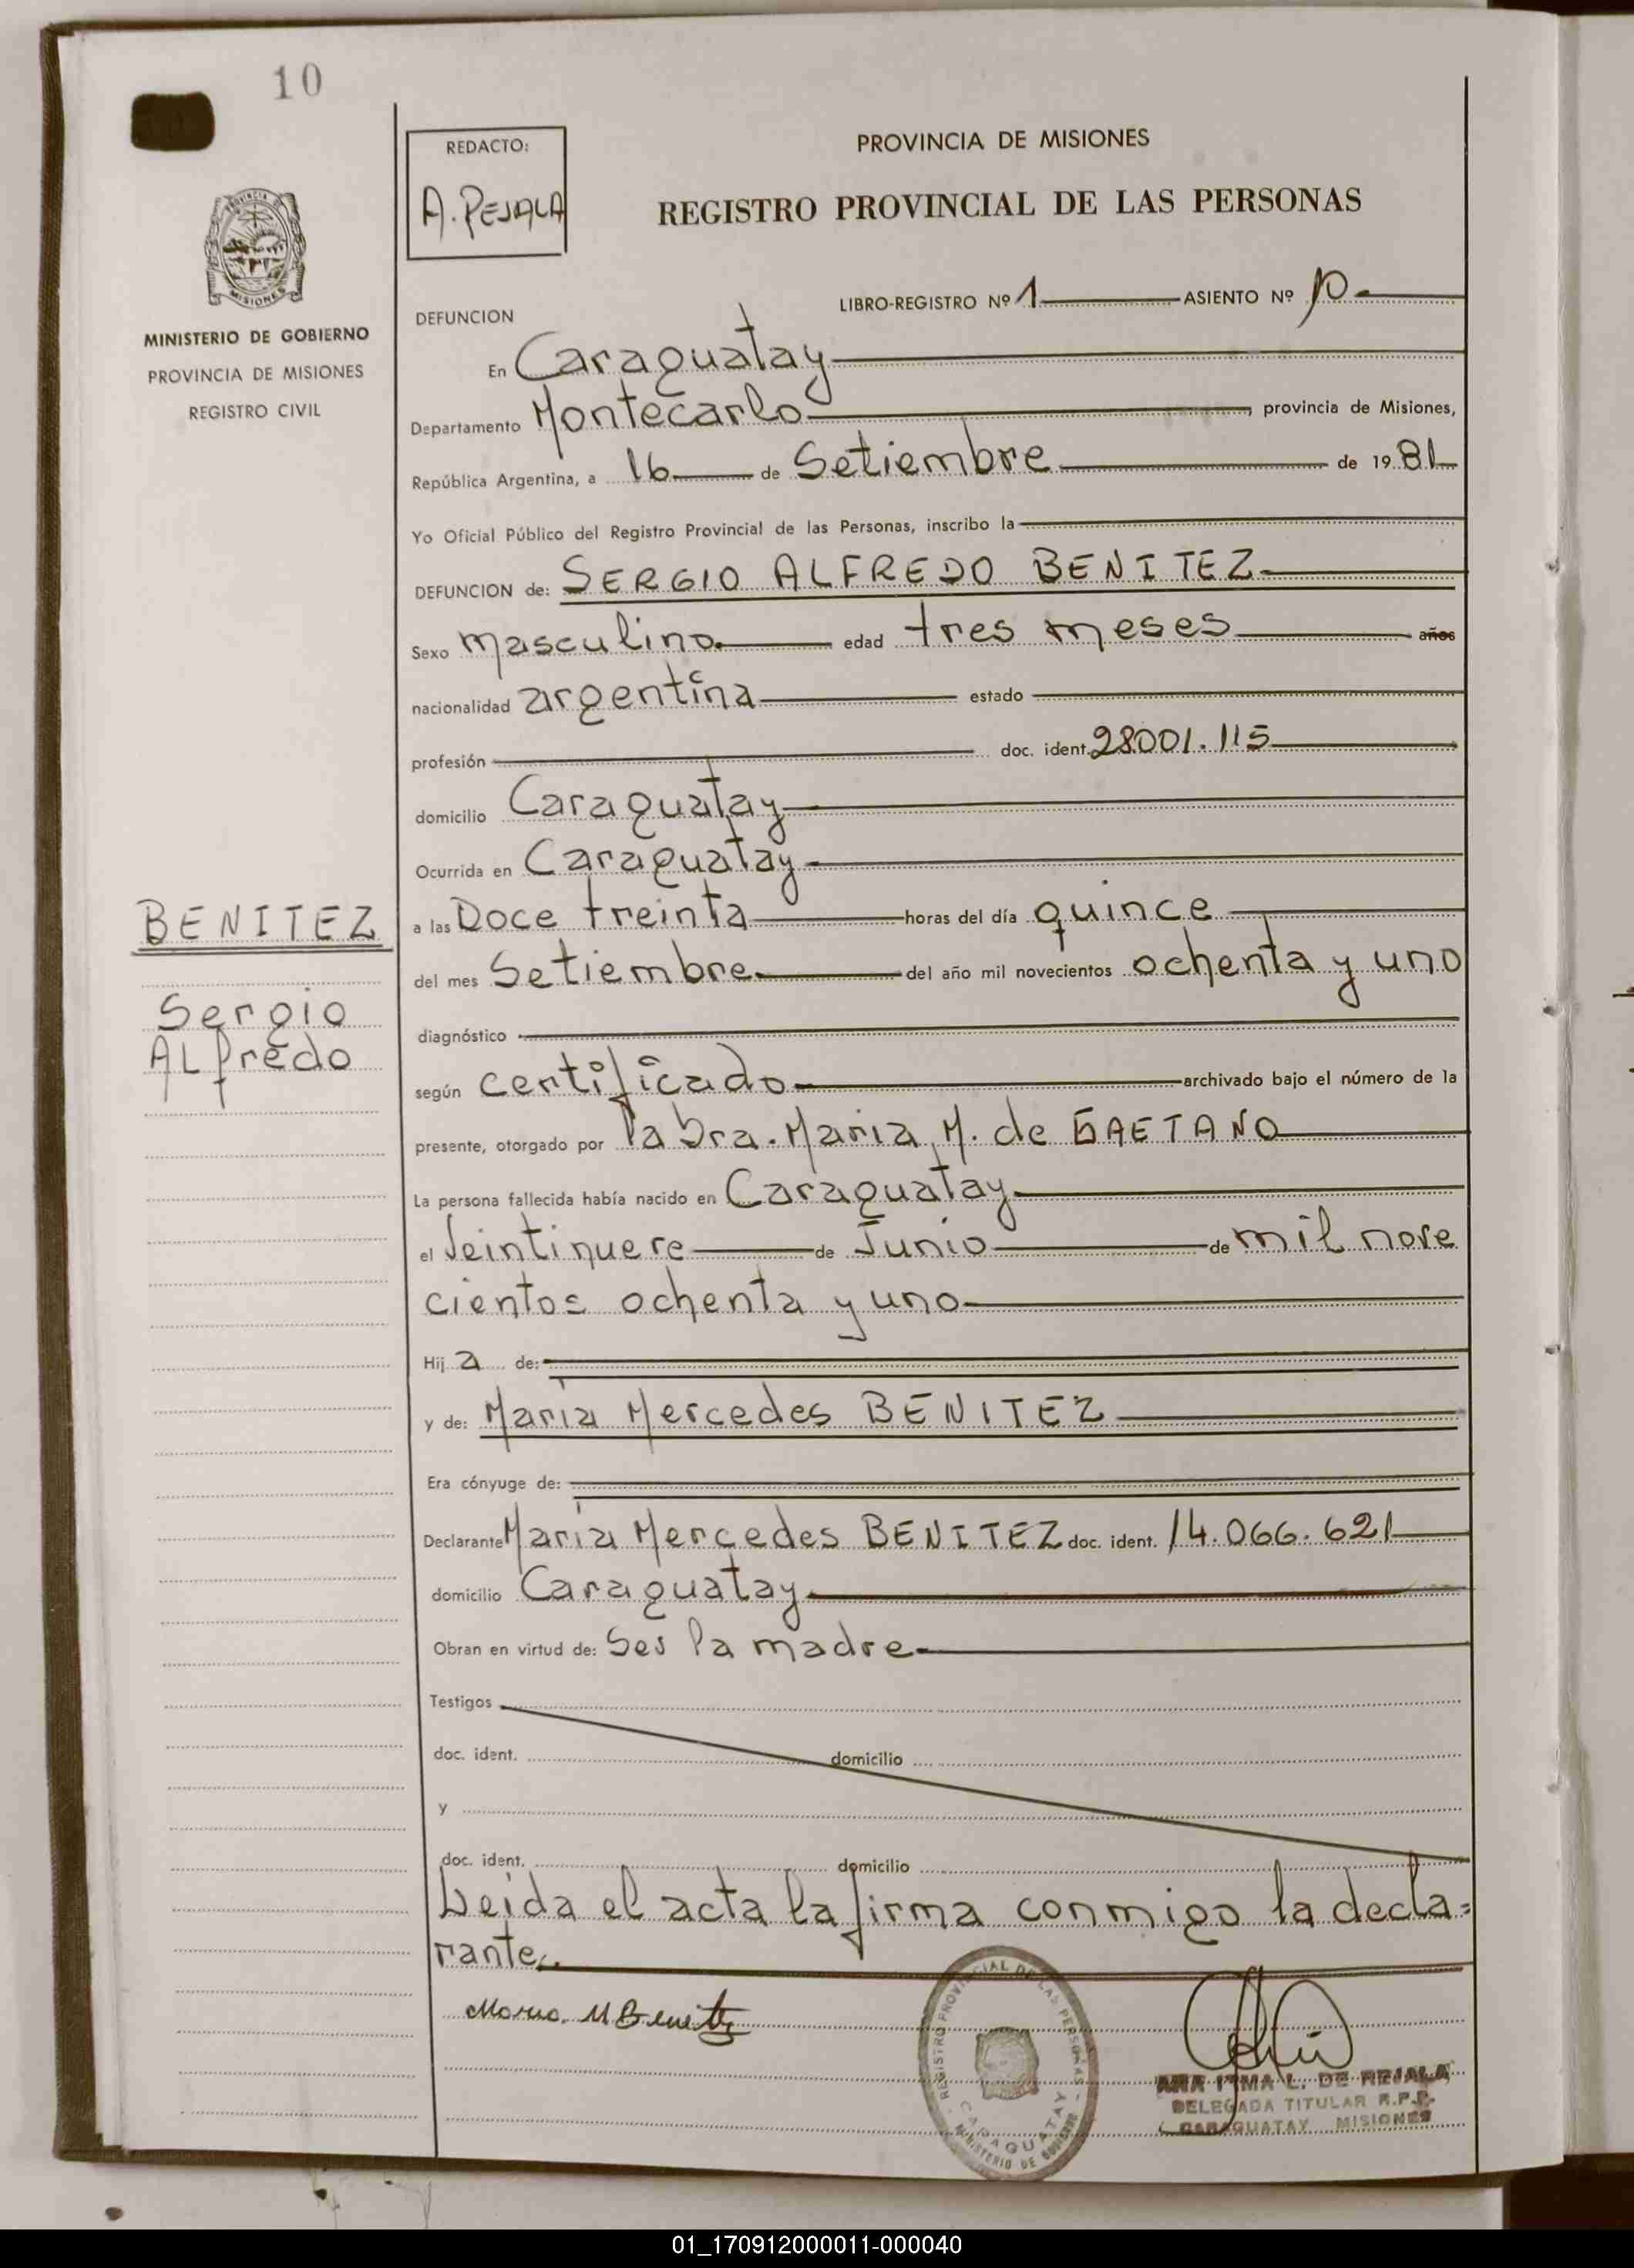 10
REDACTO:
A. PEJALA
PROVINCIA DE MISIONES
REGISTRO PROVINCIAL DE LAS PERSONAS
MISIONES
MINISTERIO DE GOBIERNO
PROVINCIA DE MISIONES
REGISTRO CIVIL
LIBRO-REGISTRO Nº 1 ASIENTO Nº 10
DEFUNCION
En Caraguatay
Departamento Montecarlo, provincia de Misiones,
República Argentina, a 16 de Setiembre de 1981
Yo Oficial Público del Registro Provincial de las Personas, inscribo la
DEFUNCION de: SERGIO ALFREDO BENITEZ
Sexo masculino edad tres meses años
nacionalidad argentina estado
profesión doc. ident. 28001.115
domicilio Caraguatay
Ocurrida en Caraguatay
BENITEZ
Sergio
ALfredo
a las Doce treinta horas del día quince
del mes Setiembre del año mil novecientos ochenta y uno
diagnóstico
según certificado archivado bajo el número de la
presente, otorgado por la Dra. Maria M. de GAETANO
La persona fallecida había nacido en Caraguatay
el Veintinueve de Junio de mil nove
cientos ochenta y uno
Hij a de:
y de: Maria Mercedes BENITEZ
Era cónyuge de:
Declarante Maria Mercedes BENITEZ doc. ident. 14.066.621
domicilio Caraguatay
Obran en virtud de: Ser la madre
Testigos
doc. ident. domicilio
y
doc. ident. domicilio
Leida el acta la firma conmigo la decla=
rante.
Maria M Benitez
REGISTRO PROVINCIAL DE LAS PERSONAS
CARAGUATAY
MINISTERIO DE GOBIERNO
ANA IRMA L. DE REJALA
DELEGADA TITULAR R.P.P.
CARAGUATAY MISIONES
01_170912000011-000040